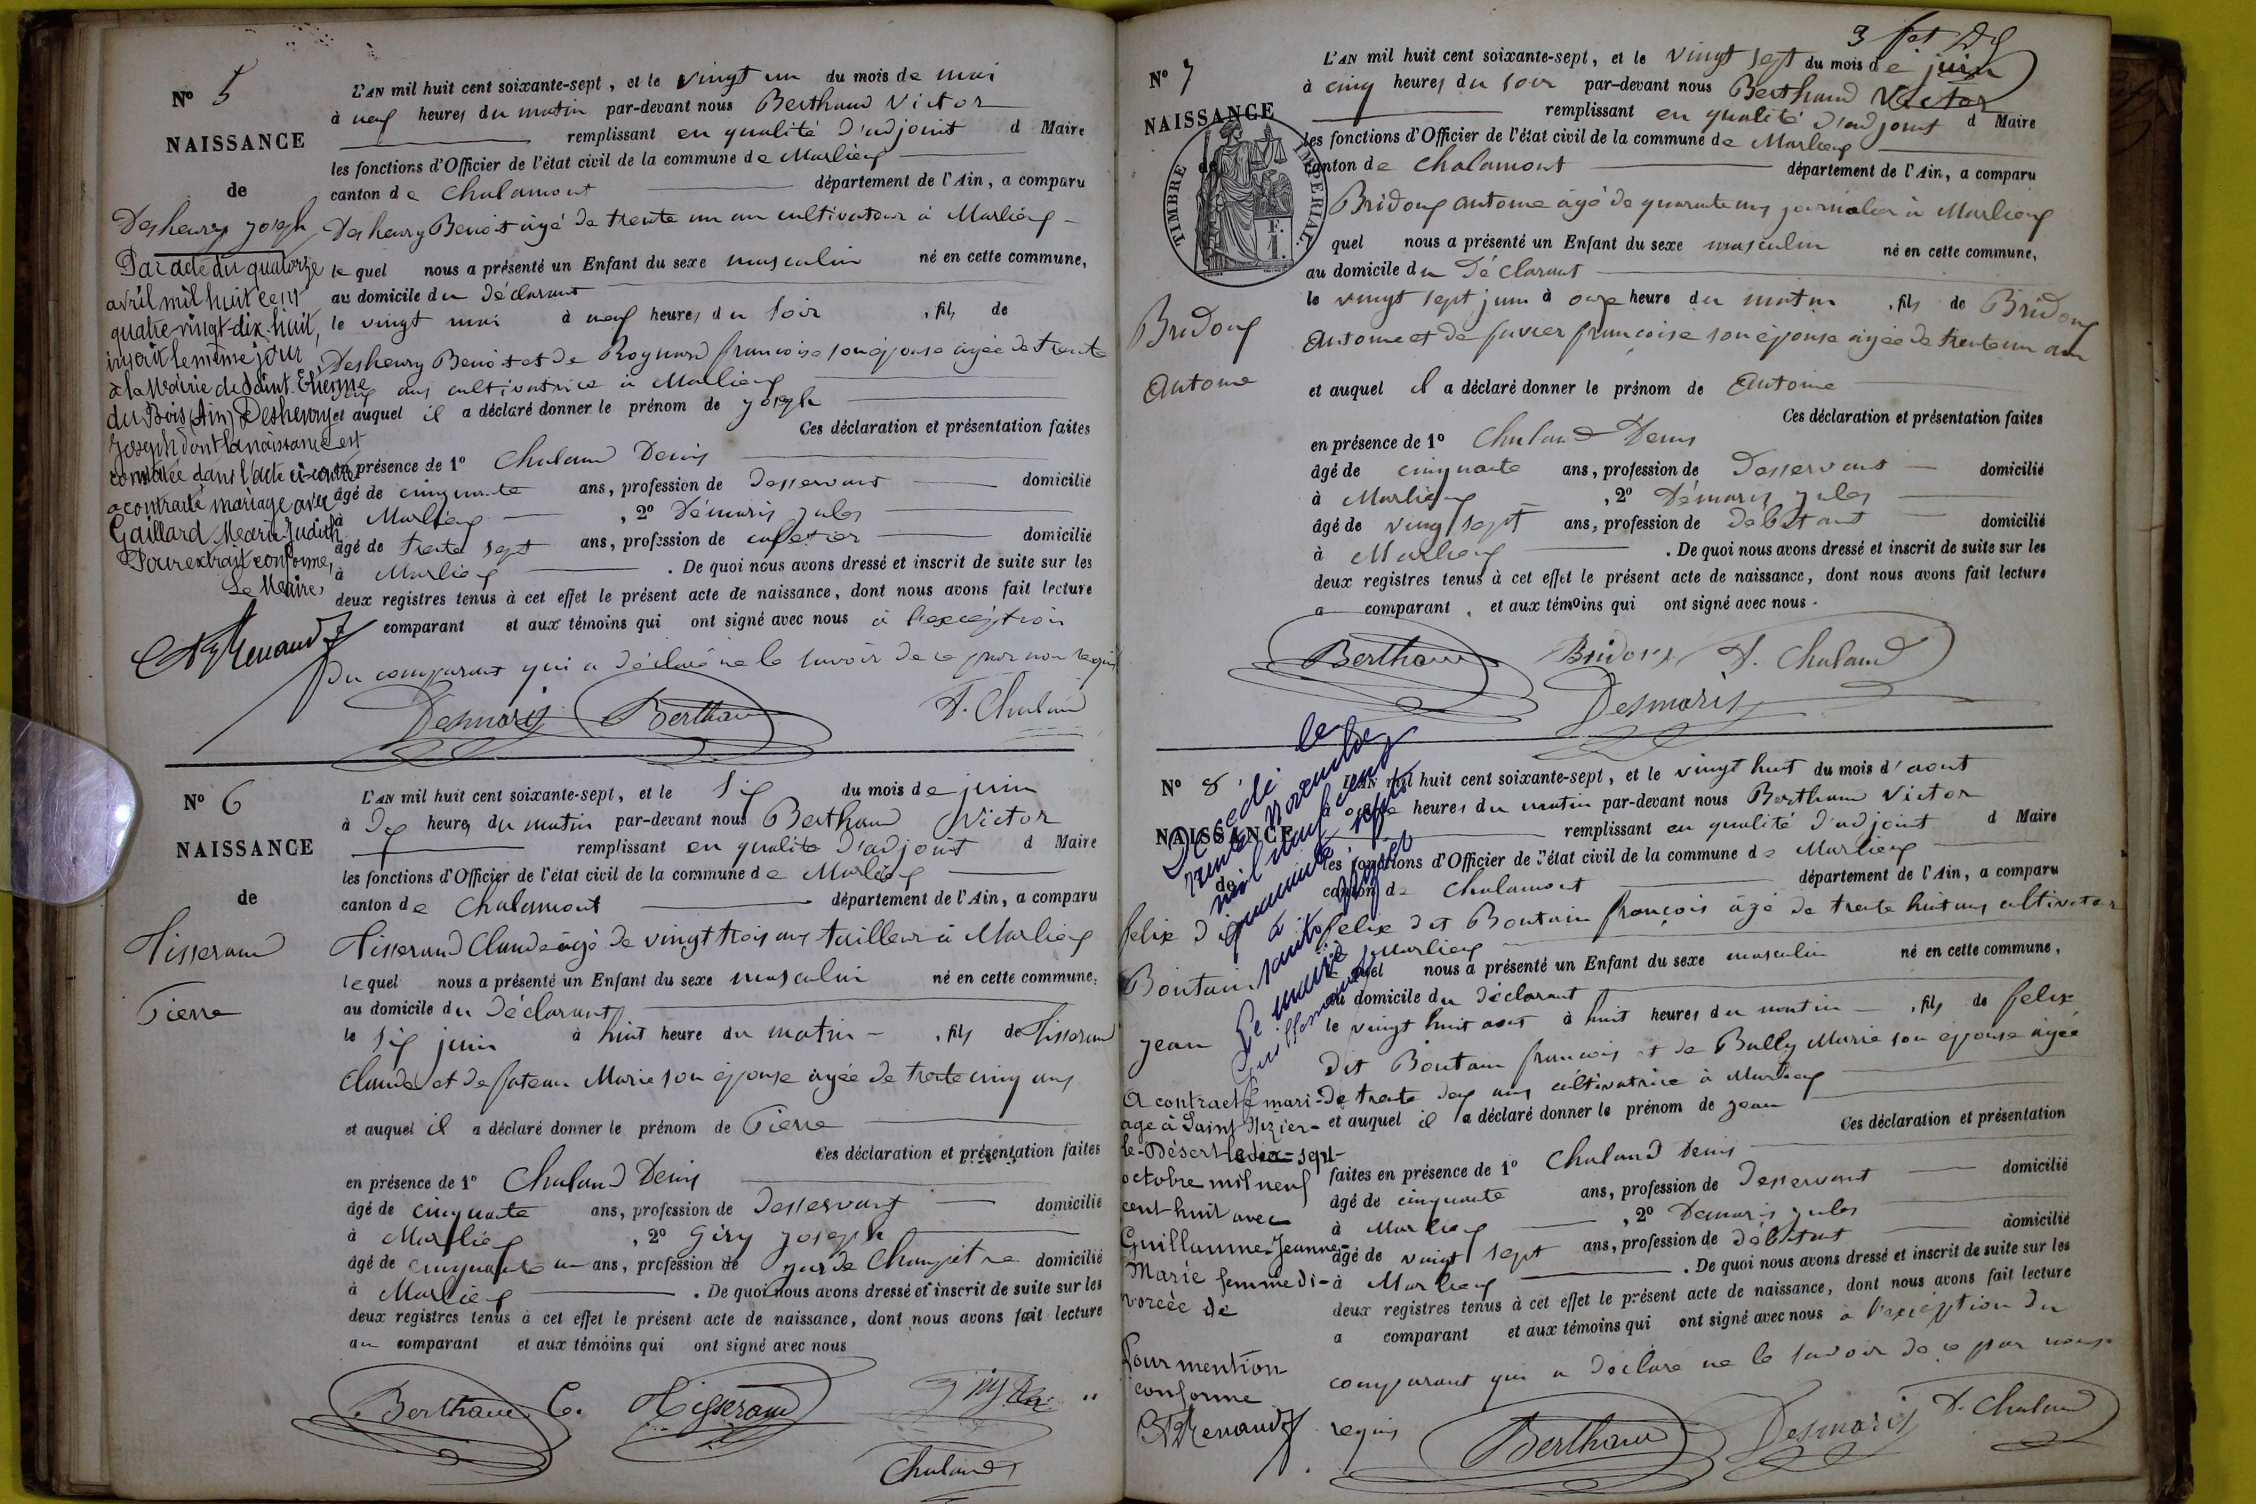 N° 5
NAISSANCE
de
Desheury Joseph
Par acte du quatorze
avril mil huit cent
quatre-vingt-dix-huit,
inscrit le même jour
à la Mairie de Saint-Etienne
du Bois (Ain) Desheury
Joseph dont la naissance est
constatée dans l'acte ci-contre
a contracté mariage avec
Gaillard Marie Judith
Pour extrait conforme,
Le Maire,
Renaud
L'AN mil huit cent soixante-sept, et le vingt un du mois de mai
à neuf heures du matin par-devant nous Berthaud Victor
remplissant en qualité d'adjoint d Maire
les fonctions d'Officier de l'état civil de la commune de Marlieux
canton de Chalamont département de l'Ain, a comparu
Desheury Benoit âgé de trente un an cultivateur à Marlieux
lequel nous a présenté un Enfant du sexe masculin né en cette commune,
au domicile du Déclarant
le vingt mai à neuf heures du soir, fils de
Desheury Benoit et de Roynard francoise son épouse âgée de trente
ans cultivatrice à Marlieux
et auquel il a déclaré donner le prénom de Joseph
Ces déclaration et présentation faites
en présence de 1° Chaland Denis
âgé de cinquante ans, profession de Desservant domicilié
à Marlieux, 2° Démaris Jules
âgé de trente sept ans, profession de cafetier domicilié
à Marlieux. De quoi nous avons dressé et inscrit de suite sur les
deux registres tenus à cet effet le présent acte de naissance, dont nous avons fait lecture
comparant et aux témoins qui ont signé avec nous à l'exception
du comparant qui a déclaré ne le savoir de ce par nous requis
Desmaris Berthaud D. Chaland
N° 6
NAISSANCE
de
Tisserand
Pierre
L'AN mil huit cent soixante-sept, et le six du mois de juin
à dix heures du matin par-devant nous Berthaud Victor
remplissant en qualité d'adjoint d Maire
les fonctions d'Officier de l'état civil de la commune de Marlieux
canton de Chalamont département de l'Ain, a comparu
Tisserand Claude âgé de vingt trois ans tailleur à Marlieux
lequel nous a présenté un Enfant du sexe masculin né en cette commune,
au domicile du Déclarant
le six juin à huit heure du matin, fils de Tisserand
Claude et de fateau Marie son épouse âgée de trente cinq ans
et auquel il a déclaré donner le prénom de Pierre
Ces déclaration et présentation faites
en présence de 1° Chaland Denis
âgé de cinquante ans, profession de Desservant domicilié
à Marlieux, 2° Giry Joseph
âgé de cinquante un ans, profession de garde Champêtre domicilié
à Marlieux. De quoi nous avons dressé et inscrit de suite sur les
deux registres tenus à cet effet le présent acte de naissance, dont nous avons fait lecture
au comparant et aux témoins qui ont signé avec nous
Berthaud C. Tisserand
Chaland
N° 7
NAISSANCE
de
TIMBRE IMPÉRIAL
F.
1.
Bridoux
Antoine
L'AN mil huit cent soixante-sept, et le vingt sept du mois de juin
à cinq heures du soir par-devant nous Berthaud Victor
remplissant en qualité d'adjoint d Maire
les fonctions d'Officier de l'état civil de la commune de Marlieux
canton de Chalamont département de l'Ain, a comparu
Bridoux antoine âgé de quarante ans journalier à Marlieux
quel nous a présenté un Enfant du sexe masculin né en cette commune,
au domicile du Déclarant
le vingt sept juin à onze heure du matin, fils de Bridoux
Antoine et de fuvier francoise son épouse âgée de trente un an
et auquel il a déclaré donner le prénom de Antoine
Ces déclaration et présentation faites
en présence de 1° Chaland Denis
âgé de cinquante ans, profession de Desservant domicilié
à Marlieux, 2° Démaris Jules
âgé de vingt sept ans, profession de débitant domicilié
à Marlieux. De quoi nous avons dressé et inscrit de suite sur les
deux registres tenus à cet effet le présent acte de naissance, dont nous avons fait lecture
a comparant, et aux témoins qui ont signé avec nous.
Berthaud Bridoux D. Chaland
Desmaris
N° 8
NAISSANCE
de
felix dit
Boutain
Jean
Décédé le
trente Novembre
mil neuf cent
quarante sept
à
Le maire
A contracté mari-
age à Saint Nizier-
le-Désert le dix-sept
octobre mil neuf
cent huit avec
Guillaume Jeanne-
Marie femme di-
vorcée de
Pour mention
conforme
Renaud
L'AN mil huit cent soixante-sept, et le vingt huit du mois d'aout
à onze heures du matin par-devant nous Berthaud Victor
remplissant en qualité d'adjoint d Maire
les fonctions d'Officier de l'état civil de la commune de Marlieux
canton de Chalamont département de l'Ain, a comparu
felix dit Boutain françois âgé de trente huit ans cultivateur
à Marlieux
lequel nous a présenté un Enfant du sexe masculin né en cette commune,
au domicile du Déclarant
le vingt huit aout à huit heures du matin, fils de felix
dit Boutain francois et de Bully Marie son épouse âgée
de trente deux ans cultivatrice à Marlieux
et auquel il a déclaré donner le prénom de Jean
Ces déclaration et présentation
faites en présence de 1° Chaland Denis
âgé de cinquante ans, profession de Desservant domicilié
à Marlieux, 2° Demaris Jules
âgé de vingt sept ans, profession de débitant domicilié
à Marlieux. De quoi nous avons dressé et inscrit de suite sur les
deux registres tenus à cet effet le présent acte de naissance, dont nous avons fait lecture
a comparant et aux témoins qui ont signé avec nous à l'exception du
comparant qui a déclaré ne le savoir de ce par nous
requis
Berthaud Desmaris D. Chaland